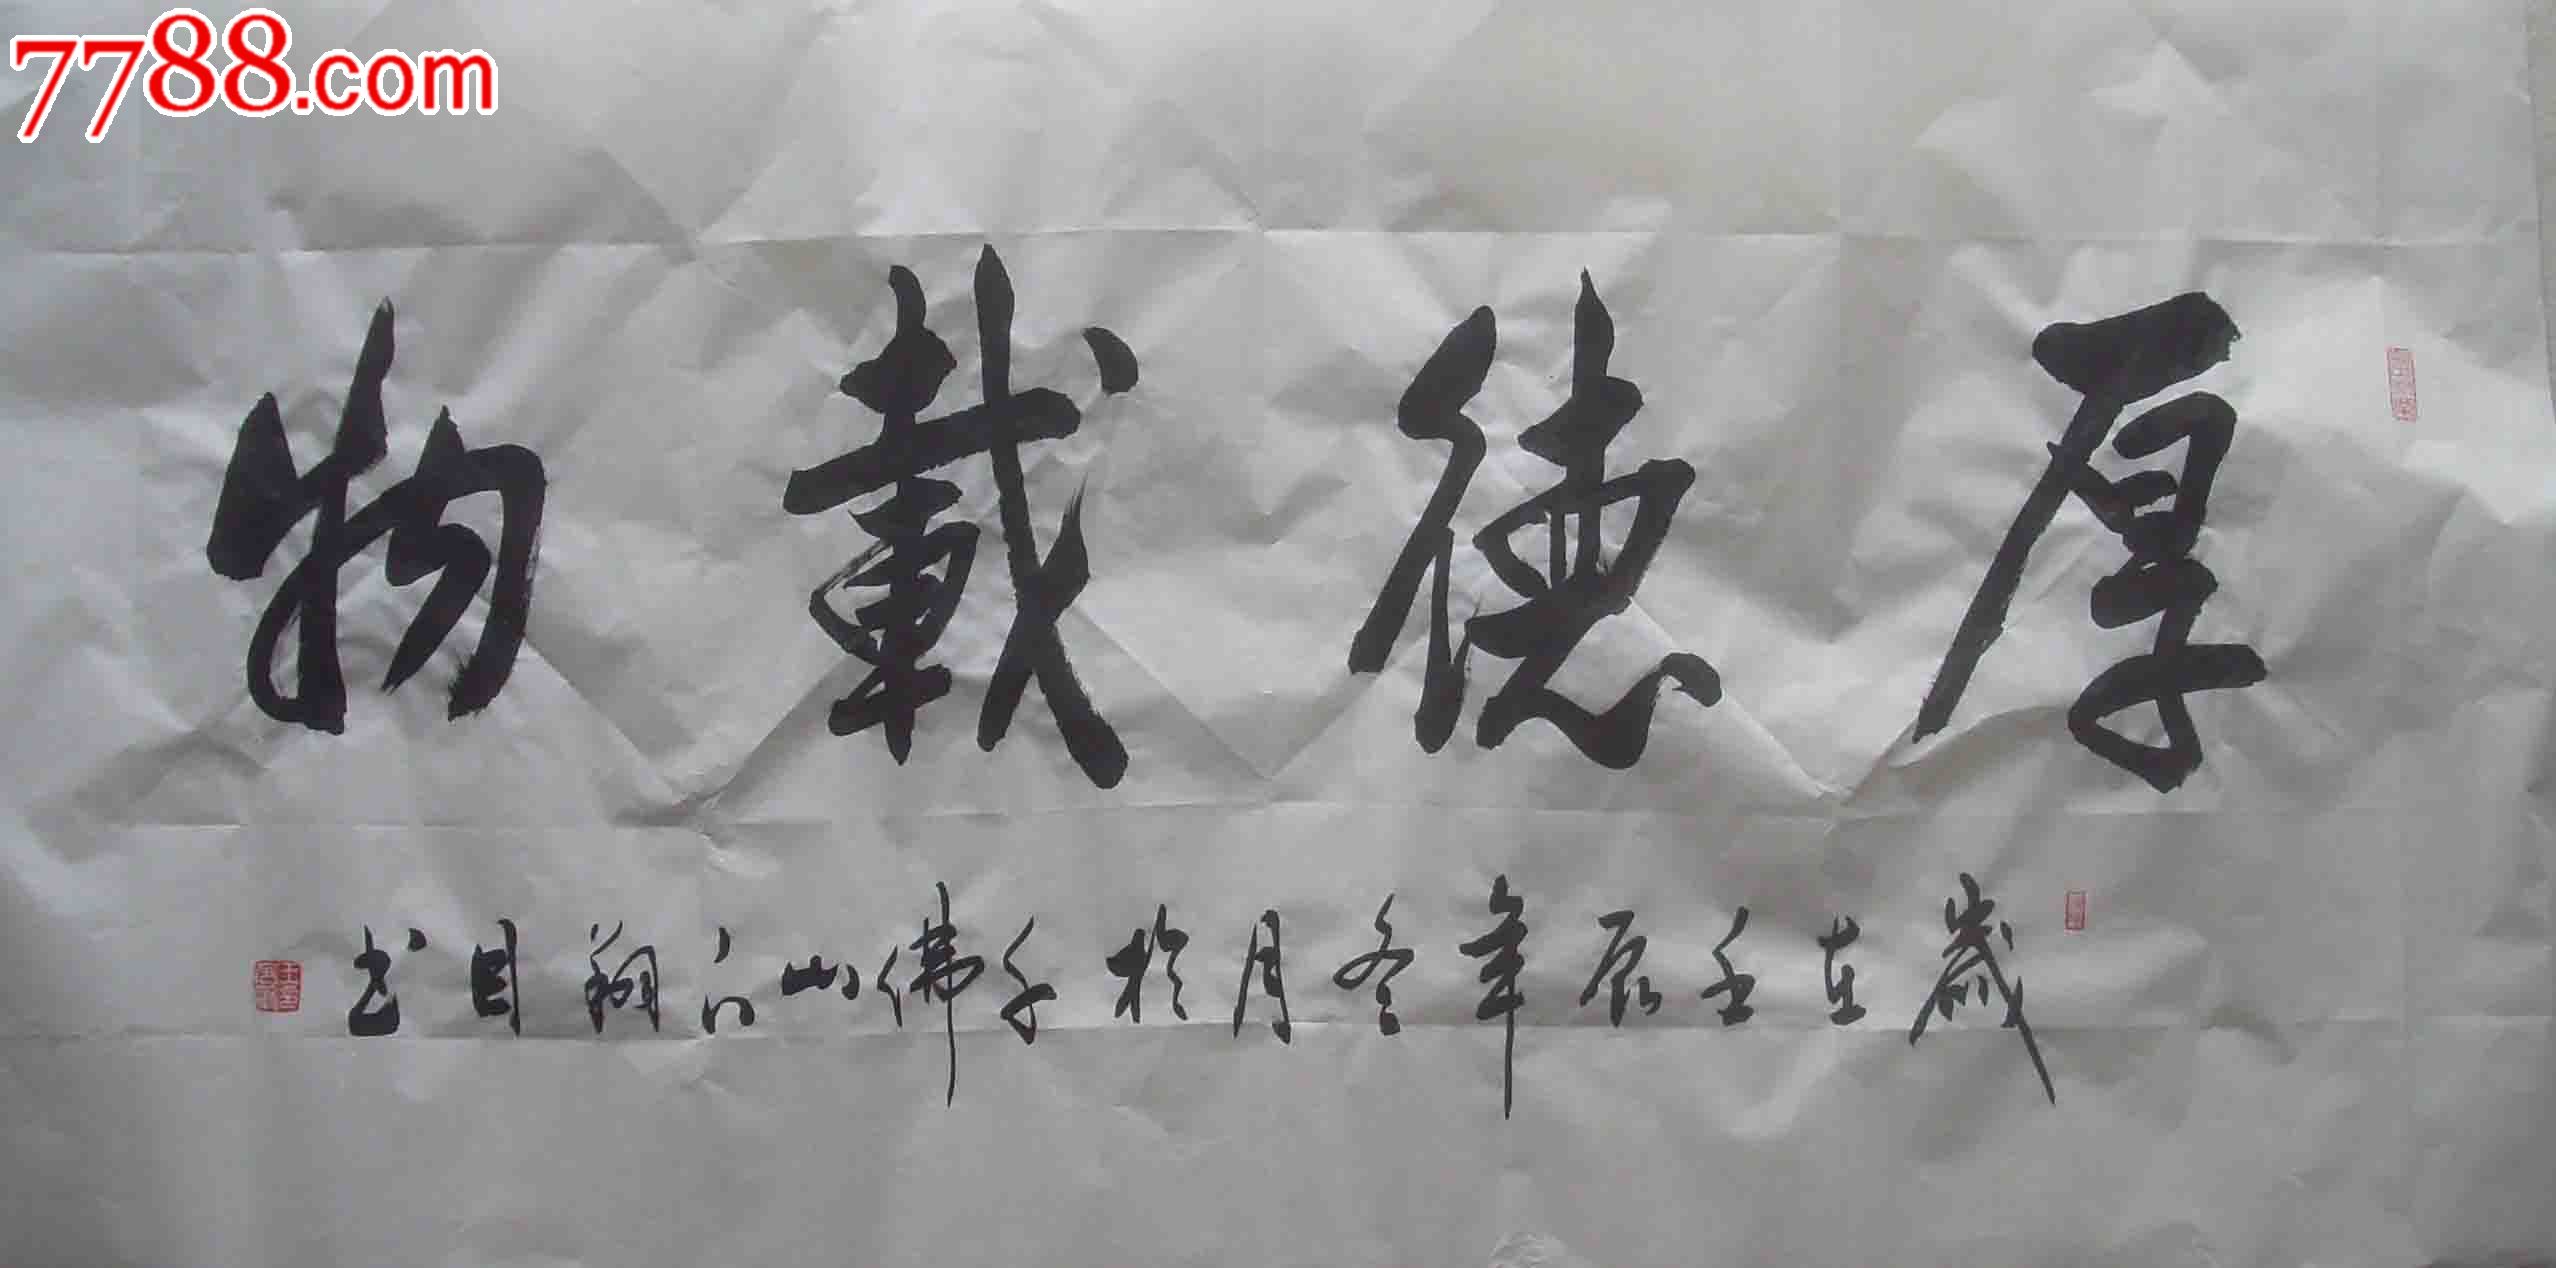 7788.com
厚德載物
歲在壬辰年冬月於千佛山下翔目书